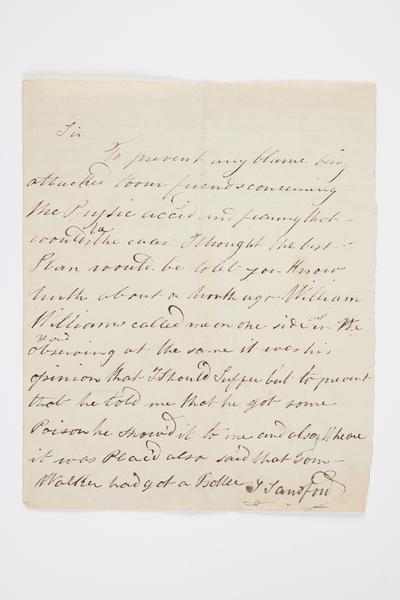 Sir
To prevent any blame being
attached to our friends concerning
the Physic acc'd and fearing that
would be the case I thought the best
Plan would be to let you Know
truth about a month ago William
Williams called me on one side in the
yard
observing at the same it was his
opinion that I should suffer but to prevent
that he told me that he got some
Poison he show'd it to me and also Wheare
it was Placed also said that Tom
Walker had got a Bottle J Sandford